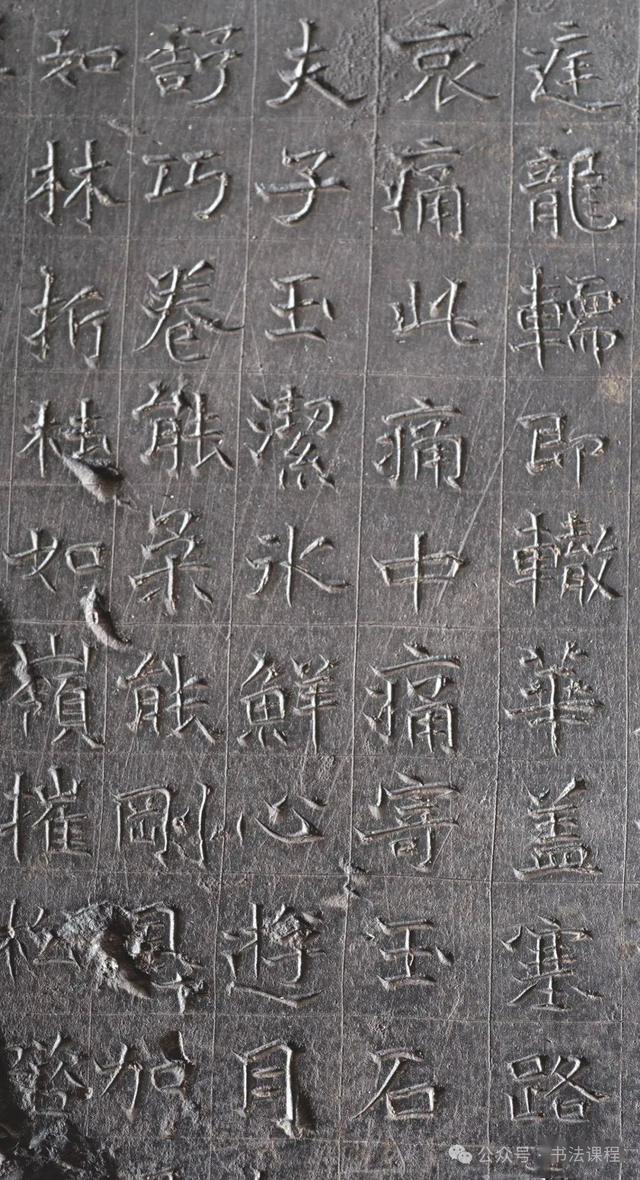 庭龍轜即轍華盖塞路
哀痛此痛中痛寄玉石
夫子玉潔氷鮮心遊月
舒巧卷能柔能剛恩加
如林折桂如嶺摧松
公众号·书法课程